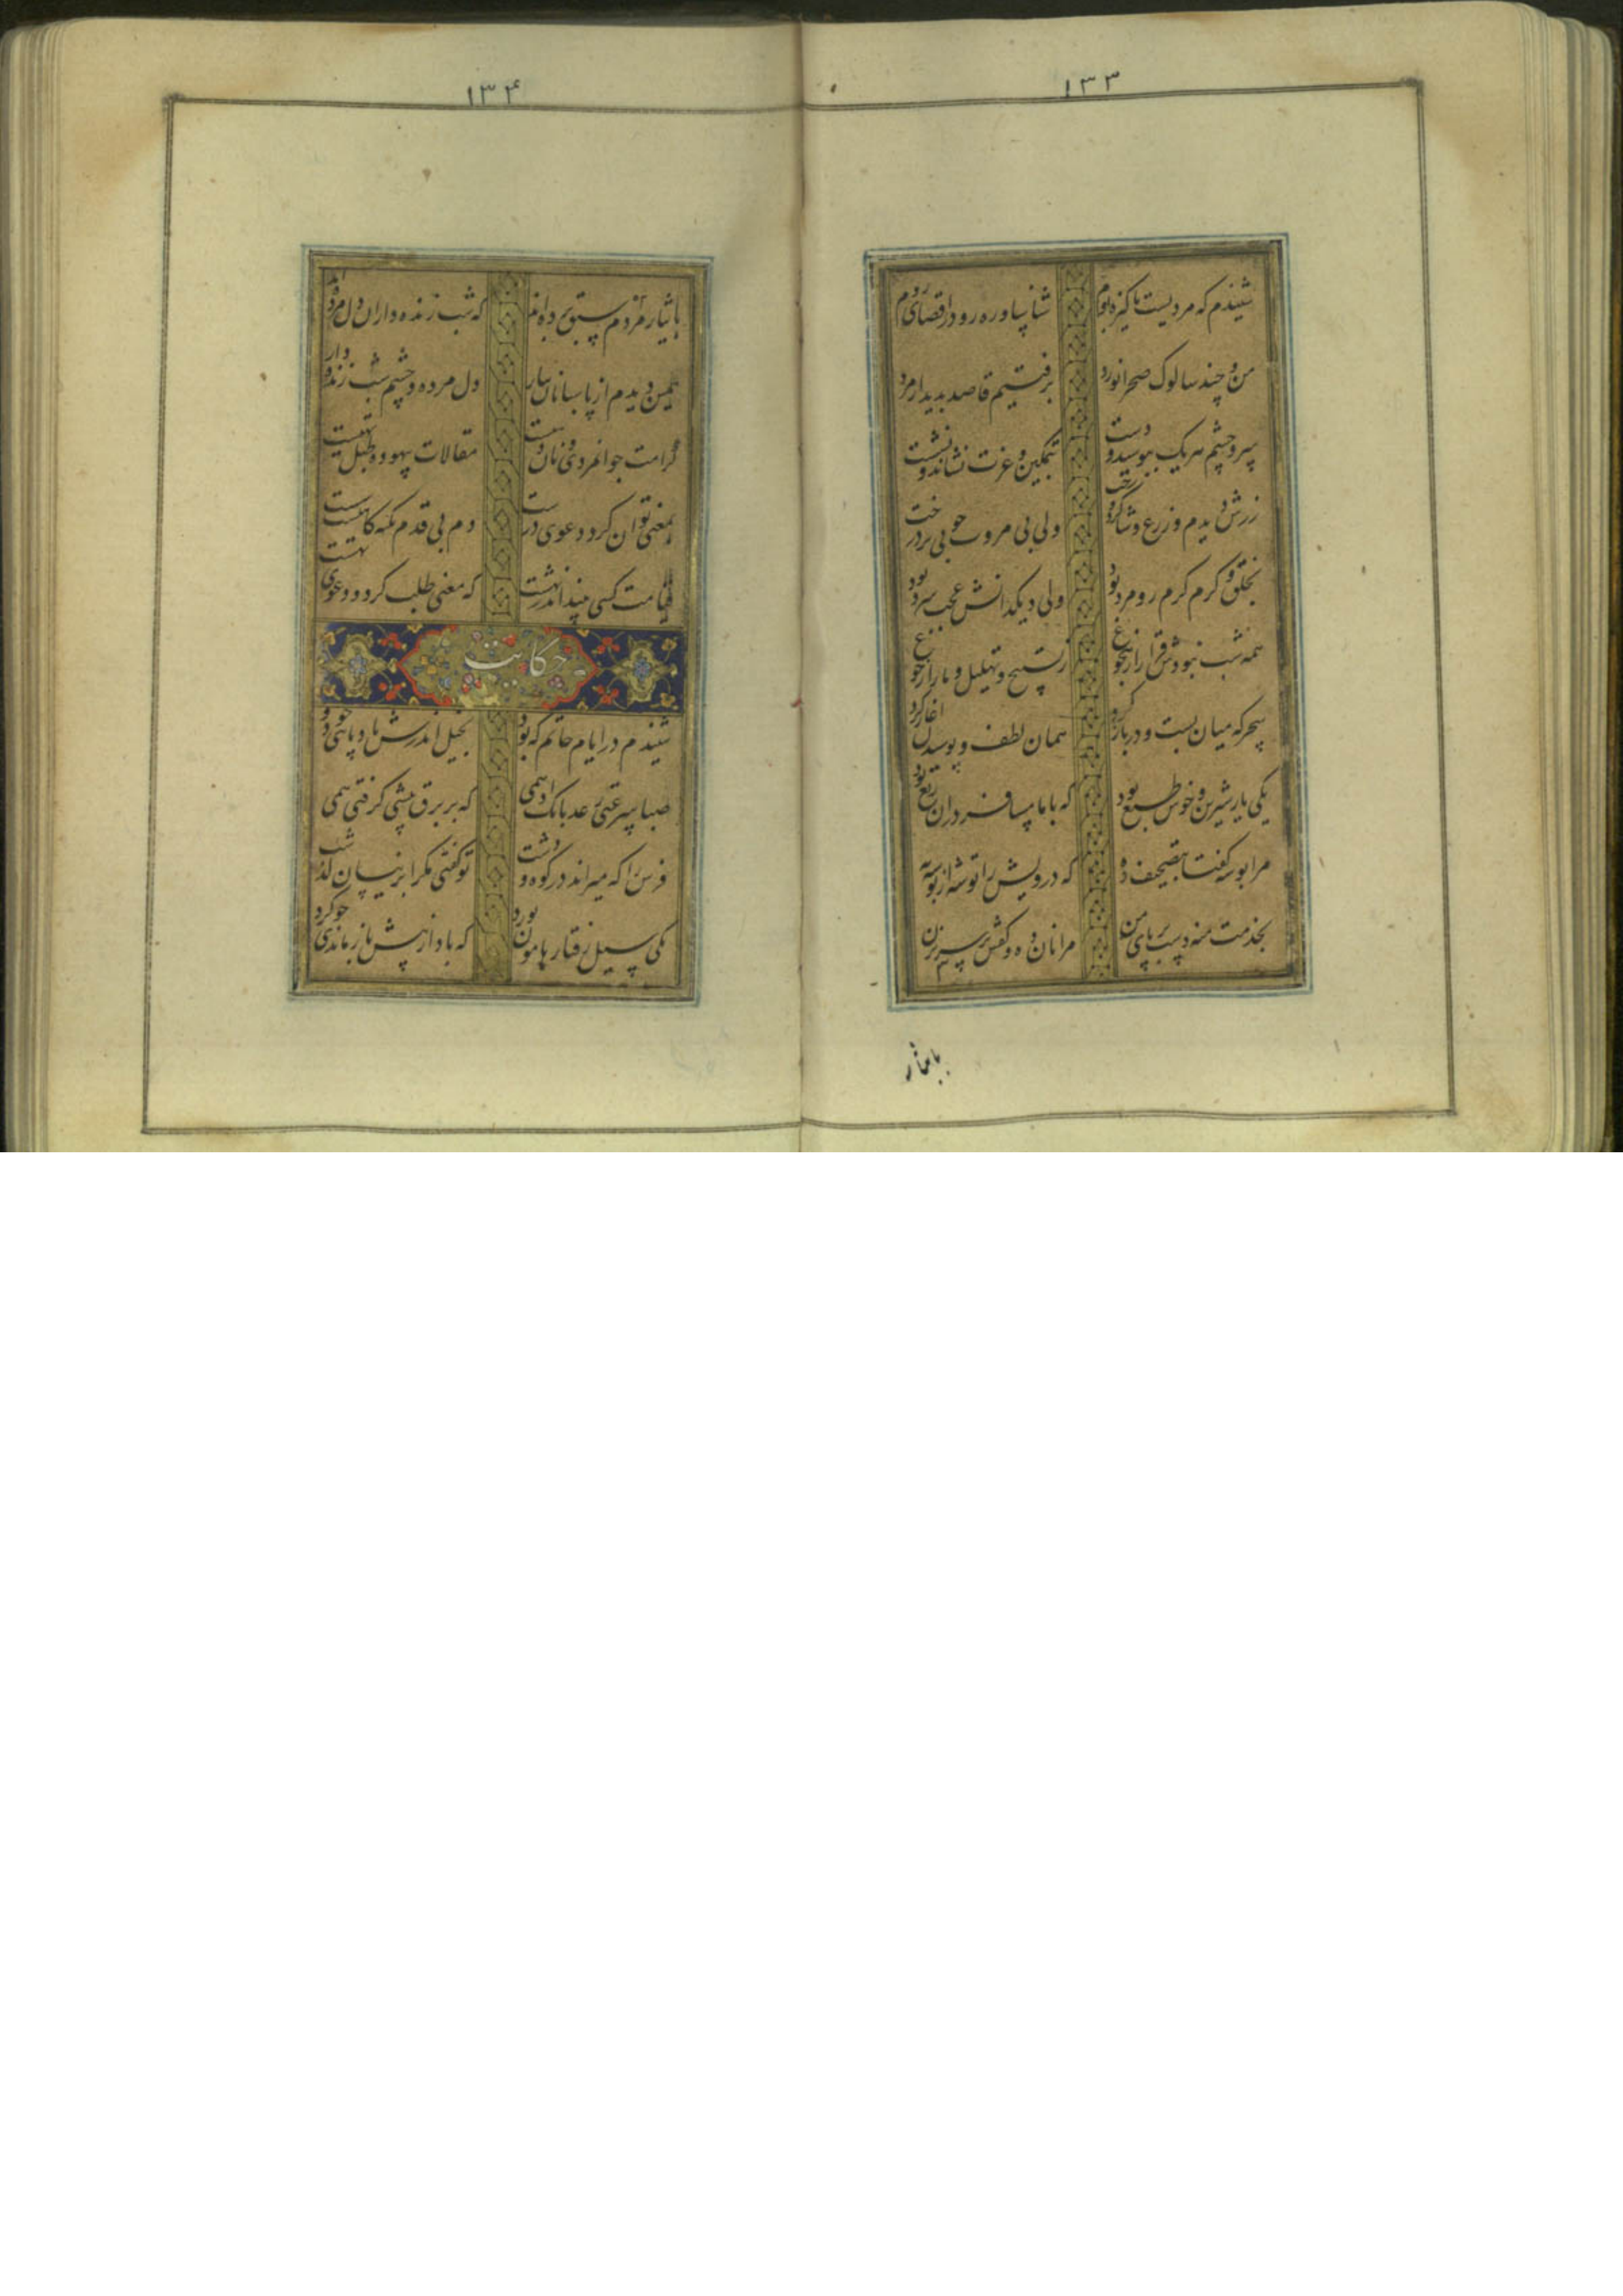 ۱۳۳
شنیدم که مردیست پاکیزه بوم شناسا و ره رو در اقصای روم
من و چند سالوک صحرا نورد برفتیم قاصد بدیدار مرد
سر و چشم هر یک ببوسید و دست بتمکین و عزت نشاند و نشست
زرش دیدم و زرع و شاگرد و رخت ولی بی مروت چو بی بر درخت
بخلق و کرم گرم رو مرد بود ولی دیکدانش عجب سرد بود
همه شب نبودش قرار از هجوع ز تسبیح و تهلیل و ما را ز جوع
سحرکه میان بست و در باز کرد همان لطف و بوسیدن آغاز کرد
یکی یار شیرین و خوش طبع بود که با ما مسافر دران ربع بود
مرا بوسه کفتا بتصحیف ده که درویش را توشه از بوسه به
بخدمت منه دست بر پای من مرا نان ده و کفش بر سر بزن
بایثار
۱۳۴
بایثار مردم سبق برده اند که شب زنده داران دل مرده اند
همین دیدم از پاسبانان تتار دل مرده و چشم شب زنده دار
کرامت جوانمردی و نان دهیست مقالات بیهوده طبل تهیست
بمعنی توان کرد دعوی درست دم بی قدم تکیه کاهیست سست
قیامت کسی بیند اندر بهشت که معنی طلب کرد و دعوی بهشت
حکایت
شنیدم در ایام حاتم که بود بخیل اندرش باد پائی چو دود
صبا سرعتی رعد بانک ادهمی که بر برق پیشی کرفتی همی
فرس را که میراند در کوه و دشت تو کفتی مکر ابر نیسان کذشت
یکی سیل رفتار هامون نورد که باد از پیش باز ماندی چو کرد